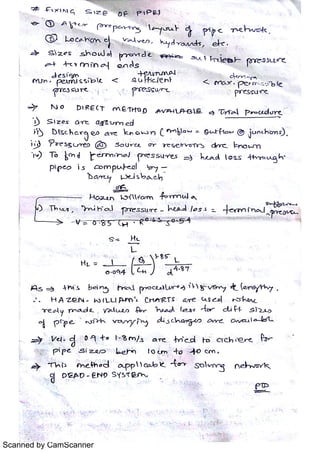 * FIXING SIZE OF PIPES
→ ① After preparing layout of pipe network.
② Location of valves, hydrants, etc.
→ Sizes should provide sufficient pressure
at terminal ends
design terminal design
min. permissible < sufficient < max. permissible
pressure pressure pressure
→ NO DIRECT METHOD AVAILABLE ∴ Trial Procedure
i) Sizes are assumed
ii) Discharges are known (inflow = outflow @ junctions).
iii) Pressures @ source or reservoirs are known
iv) To find terminal pressures ⇒ head loss through
pipes is computed by -
Darcy Weisbach
OR
Hazen William formula
v) Thus, initial pressure - head loss = terminal pressure
V = 0.85 CH R^0.63 S^0.54
S = HL
L
HL = 1/0.094 (Q/CH)^1.85 L/d^4.87
As ⇒ this being trial procedure, it is very lengthy.
∴ HAZEN-WILLIAM'S CHARTS are used
redy made values for head loss for diff sizes
of pipe with varying discharges are available.
⇒ Vel. of 0.9 to 1.8m/s are tried to achieve for
pipe sizes betn 10cm to 40 cm.
⇒ This method applicable for solving network
of DEAD-END SYSTEM.
PTO
Scanned by CamScanner